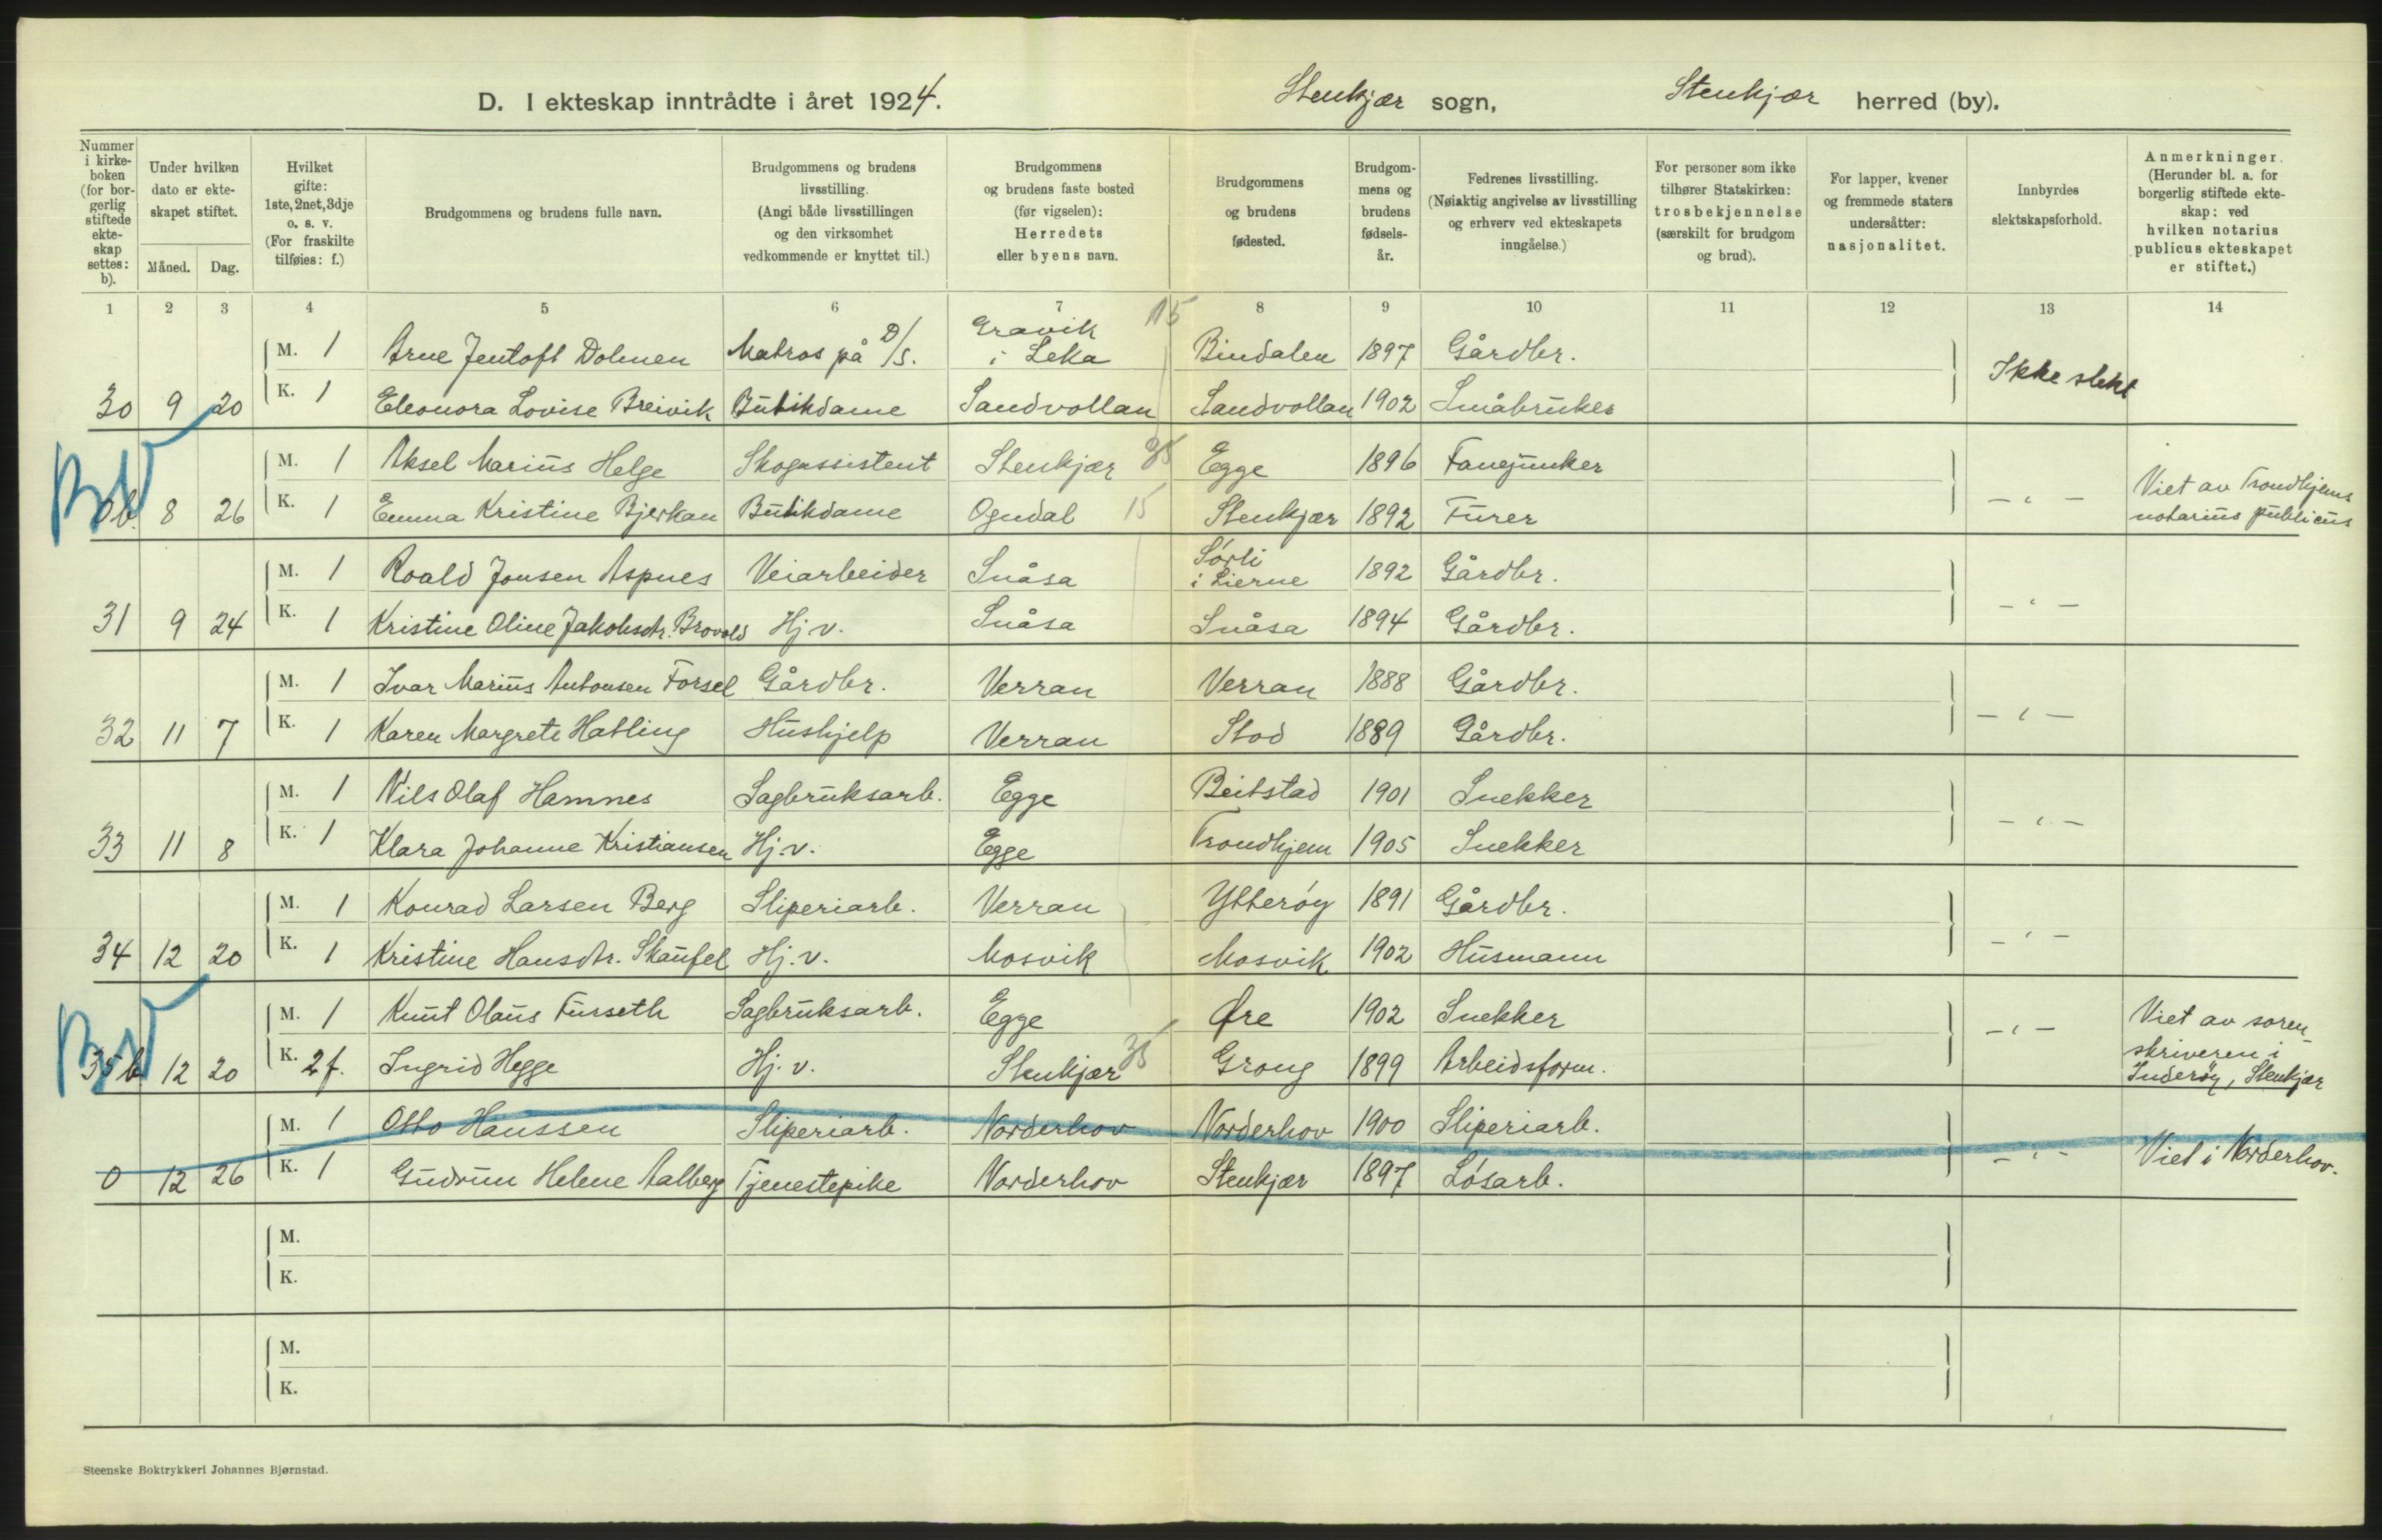 D. I ekteskap inntrådte i året 1924.
Stenkjær sogn, Stenkjær herred (by).
Nummer i kirke-boken (for bor-gerlig stiftede ekte-skap settes: b).
Under hvilken dato er ekte-skapet stiftet.
Måned. Dag.
Hvilket gifte: 1ste, 2net, 3dje o. s. v. (For fraskilte tilføies: f.)
Brudgommens og brudens fulle navn.
Brudgommens og brudens livsstilling. (Angi både livsstillingen og den virksomhet vedkommende er knyttet til.)
Brudgommens og brudens faste bosted (før vigselen): Herredets eller byens navn.
Brudgommens og brudens fødested.
Brudgom-mens og brudens fødsels-år.
Fedrenes livsstilling. (Nøiaktig angivelse av livsstilling og erhverv ved ekteskapets inngåelse.)
For personer som ikke tilhører Statskirken: trosbekjennelse (særskilt for brudgom og brud).
For lapper, kvener og fremmede staters undersåtter: nasjonalitet.
Innbyrdes slektskapsforhold.
Anmerkninger. (Herunder bl. a. for borgerlig stiftede ekte-skap: ved hvilken notarius publicus ekteskapet er stiftet.)
1 2 3 4 5 6 7 8 9 10 11 12 13 14
M. 1 Arne Jentoft Dolmen Matros på D/S. Gravik i Leka 15 Bindalen 1897 Gårdbr.
30 9 20 K. 1 Eleonora Lovise Breivik Butikdame Sandvollan Sandvollan 1902 Småbruker Ikke slekt
M. 1 Aksel Marius Helge Skogassistent Stenkjær 35 Egge 1896 Fanejunker
0b. 8 26 K. 1 Emma Kristine Bjerkan Butikdame Ogndal 15 Stenkjær 1892 Furer - " - Viet av Trondhjems notarius publicus
M. 1 Roald Jonsen Aspnes Veiarbeider Snåsa Sørli i Lierne 1892 Gårdbr.
31 9 24 K. 1 Kristine Oline Jakobsdtr. Brovold Hj. v. Snåsa Snåsa 1894 Gårdbr. - " -
M. 1 Ivar Marius Antonsen Forsel Gårdbr. Verran Verran 1888 Gårdbr.
32 11 7 K. 1 Karen Margrete Hatling Hushjelp Verran Stod 1889 Gårdbr. - " -
M. 1 Nils Olaf Hamnes Sagbruksarb. Egge Beitstad 1901 Snekker
33 11 8 K. 1 Klara Johanne Kristiansen Hj. v. Egge Trondhjem 1905 Snekker - " -
M. 1 Konrad Larsen Berg Sliperiarb. Verran Ytterøy 1891 Gårdbr.
34 12 20 K. 1 Kristine Hansdtr. Skaufel Hj. v. Mosvik Mosvik 1902 Husmann - " -
M. 1 Knut Olaus Furseth Sagbruksarb. Egge Øre 1902 Snekker
35 b 12 20 K. 2 f. Ingrid Hegge Hj. v. Stenkjær 35 Grong 1899 Arbeidsform. - " - Viet av soren-skriveren i Inderøy, Stenkjær
M. 1 Otto Hanssen Sliperiarb. Norderhov Norderhov 1900 Sliperiarb.
0 12 26 K. 1 Gudrun Helene Aalberg Tjenestepike Norderhov Stenkjær 1897 Løsarb. - " - Viet i Norderhov.
M.
K.
M.
K.
Steenske Boktrykkeri Johannes Bjørnstad.